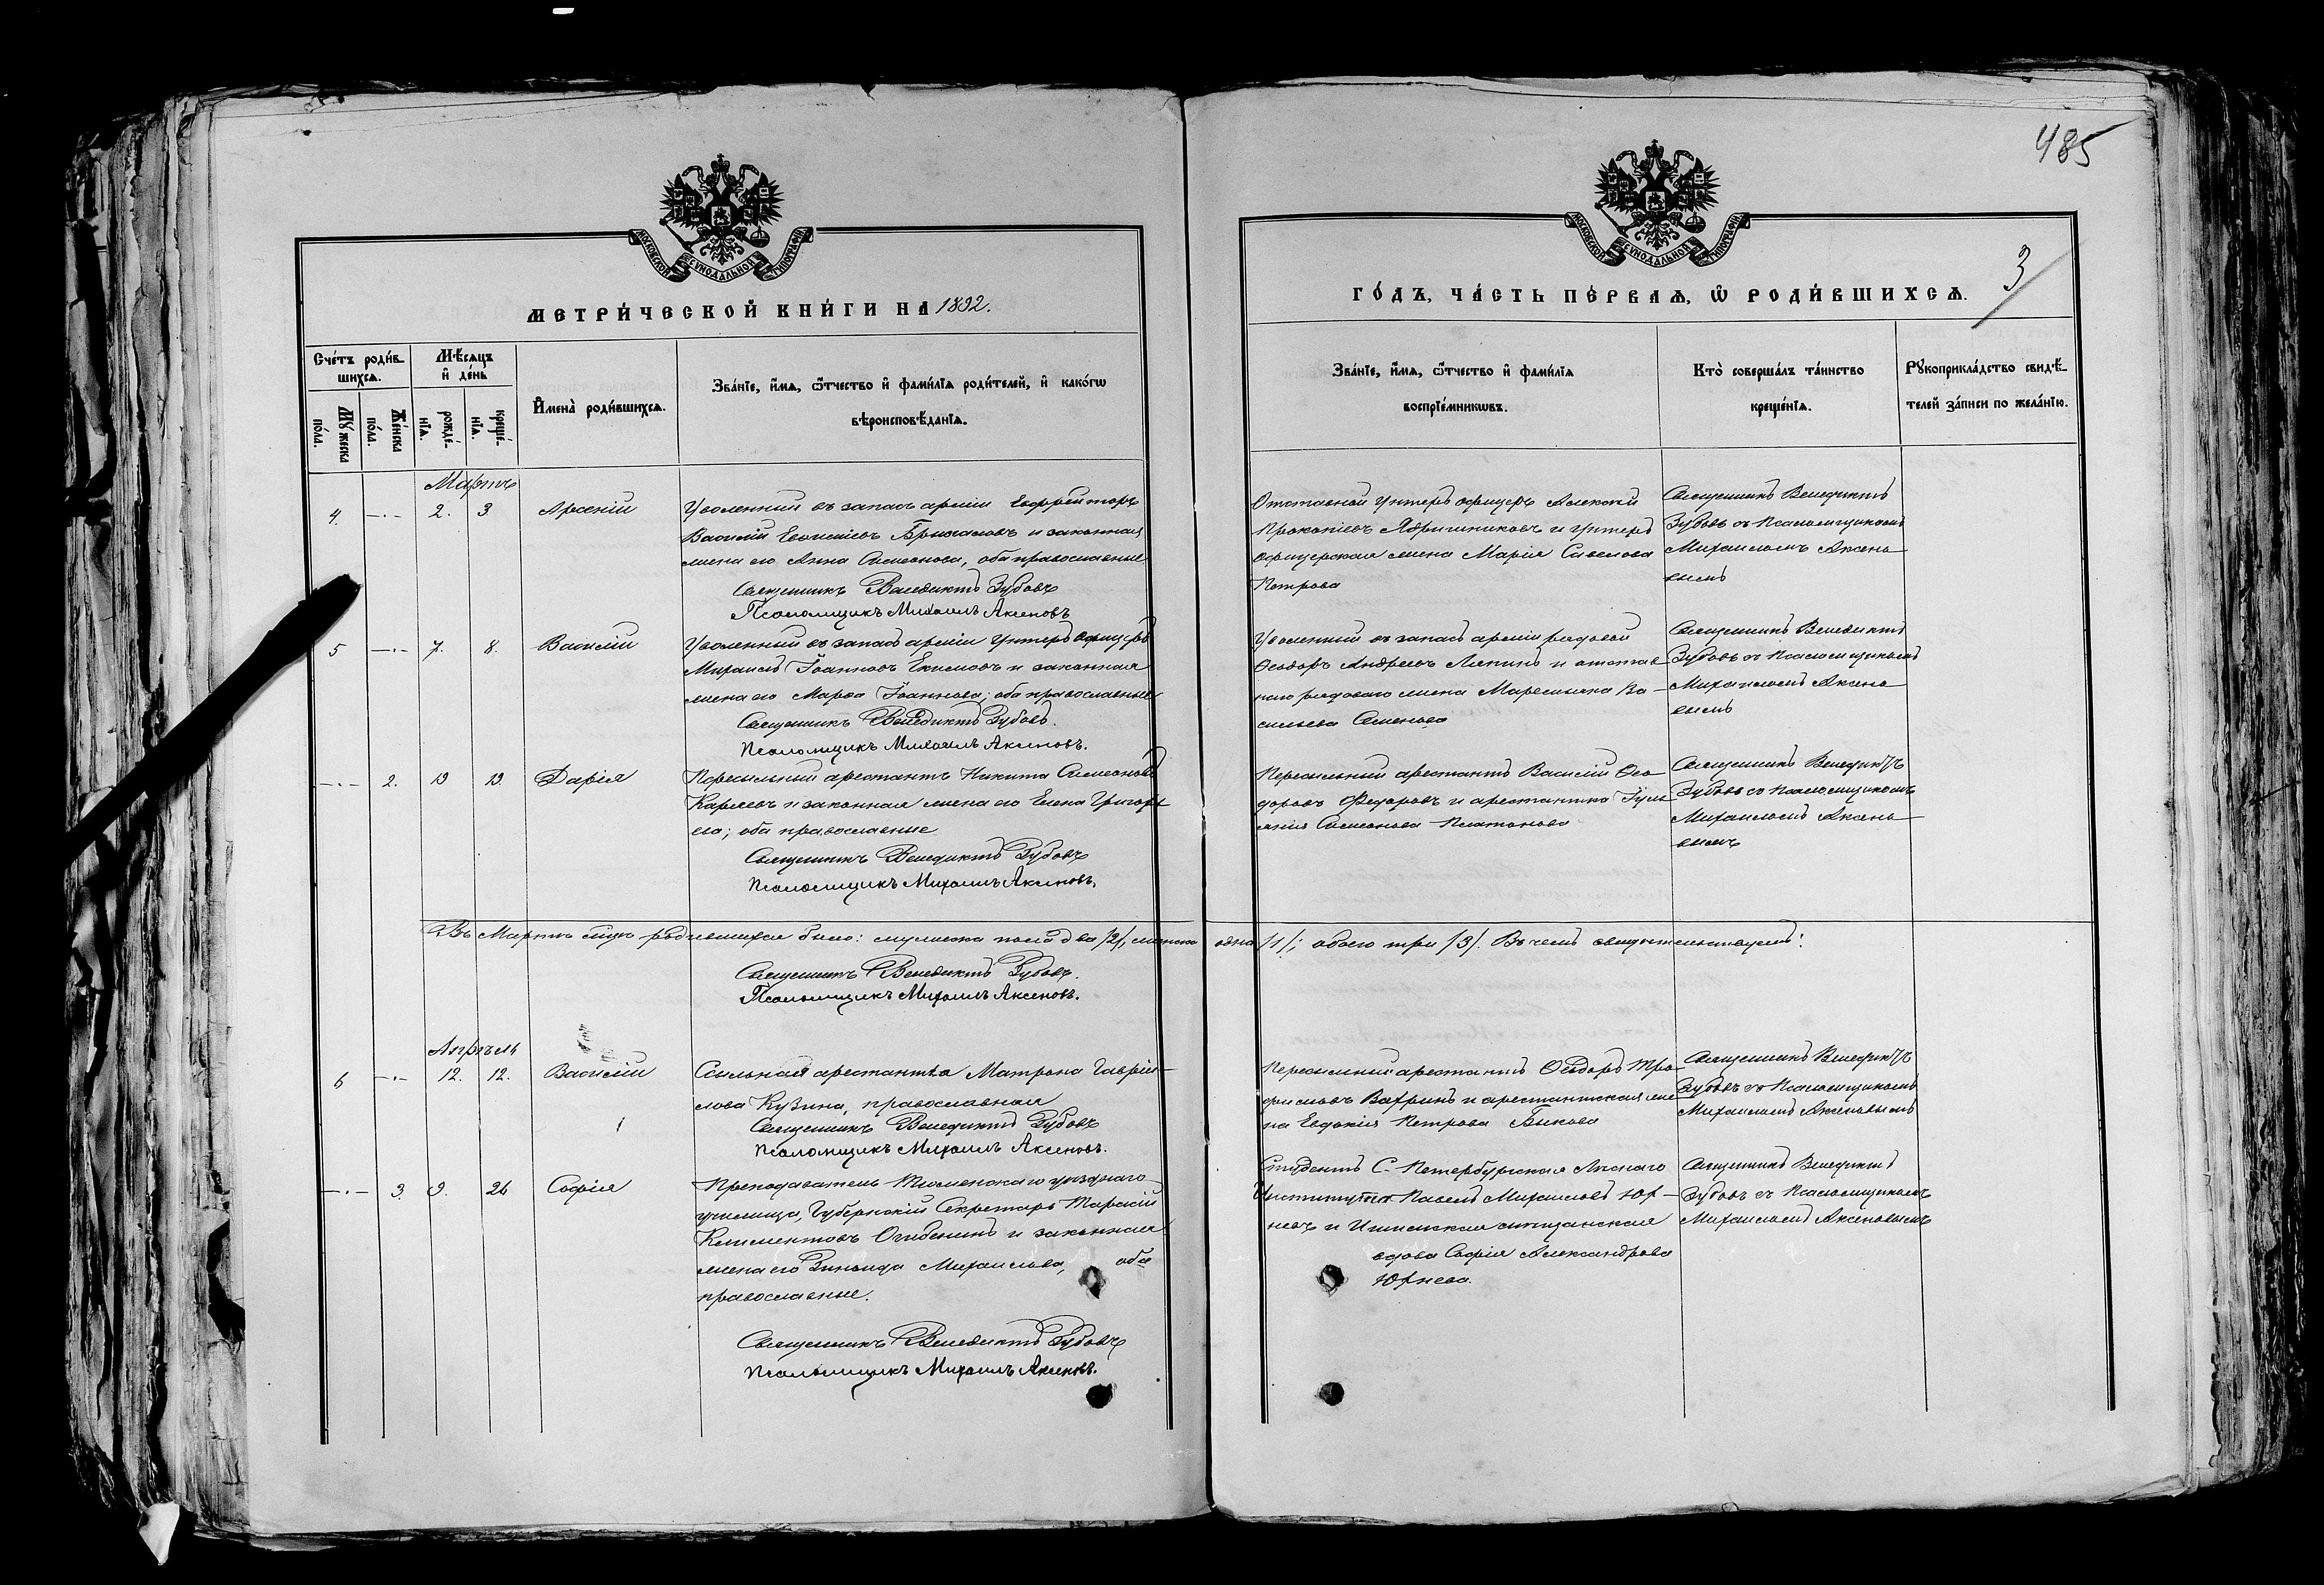 485
МОСКОВСКОЙ СѴНОДАЛЬНОЙ ТИПОГРАФІИ
МОСКОВСКОЙ СѴНОДАЛЬНОЙ ТИПОГРАФІИ
3
МЕТРИ́ЧЕСКОЙ КНИ́ГИ НА 1892.
ГО́ДЪ, ЧА́СТЬ ПЕ́РВАѦ, Ѿ РОДИ́ВШИХСѦ.
Сче́тъ роди́в-
шихсѧ.
Мꙋ́жеска
по́ла.
Же́нска
по́ла.
Мѣ́сѧцъ
и҆ де́нь
рожде́-
нїѧ.
креще́-
нїѧ.
И҆мена̀ роди́вшихсѧ.
Зва́нїе, и҆́мѧ, ѻ҆́тчество и҆ фами́лїѧ роди́телей, и҆ како́гѡ
вѣроисповѣ́данїѧ.
Зва́нїе, и҆́мѧ, ѻ҆́тчество и҆ фами́лїѧ
воспрїе́мникѡвъ.
Кто̀ соверша́лъ та́инство
креще́нїѧ.
Рꙋкоприкла́дство свидѣ́-
телей за́писи по жела́нїю.
Мартъ
4. -·- 2. 3 Арсеній
Уволенный въ запасъ арміи Ефрейторъ
Василій Евфиміевъ и законная
жена его Анна Симеонова, оба православные
Священникъ Венедиктъ Зубовъ
Псаломщикъ Михаилъ Аксеновъ
Отставной унтеръ офицеръ Алексѣй
Прокопіевъ и унтеръ
офицерская жена Марія Савелова
Петрова
Священникъ Венедиктъ
Зубовъ съ Псаломщикомъ
Михаиломъ Аксено-
вымъ
5 -·- 7. 8. Василій
Уволенный въ запасъ арміи унтеръ офицеръ
Михаилъ Іоанновъ Екимовъ и законная
жена его Марѳа Іоаннова; оба православные
Священникъ Венедиктъ Зубовъ.
Псаломщикъ Михаилъ Аксеновъ.
Уволенный въ запасъ арміи рядовой
Ѳеодоръ Андреевъ Ляпинъ и отстав-
наго рядоваго жена Маремьяна Ва-
сильева Семенова
Священникъ Венедиктъ
Зубовъ съ Псаломщикомъ
Михаиломъ Аксено-
вымъ
-·- 2. 19 19. Дарія
Пересыльный арестантъ Никита Симеоновъ
Карпевъ и законная жена его Елена Григорь-
ева; оба православные
Священникъ Венедиктъ Зубовъ
Псаломщикъ Михаилъ Аксеновъ.
Пересыльный арестантъ Василій Ѳео-
доровъ Федоровъ и арестантка Іулі-
анія Симеонова Платонова
Священникъ Венедиктъ
Зубовъ съ Псаломщикомъ
Михаиломъ Аксено-
вымъ
Въ Мартѣ мцѣ родившихся было: мужеска пола два /2/, женска одна /1/; обоего три /3/. Въ чемъ свидѣтельствуемъ:
Священникъ Венедиктъ Зубовъ.
Псаломщикъ Михаилъ Аксеновъ.
Апрѣль
6 -·- 12. 12. Василій
Ссыльная арестантка Матрона Гавріи-
лова Кузина, православная
Священникъ Венедиктъ Зубовъ
Псаломщикъ Михаилъ Аксеновъ.
Пересыльный арестантъ Ѳеодоръ Тро-
фимовъ Вахринъ и арестантская же-
на Евдокія Петрова Быкова
Священникъ Венедиктъ
Зубовъ съ Псаломщикомъ
Михаиломъ Аксеновымъ
-·- 3. 9. 26 Софія
Преподаватель Тюменскаго уѣзднаго
училища, Губернскій Секретарь Тарасій
Климентовъ Огибенинъ и законная
жена его Зинаида Михаилова, оба
православные.
Священникъ Венедиктъ Зубовъ
Псаломщикъ Михаилъ Аксеновъ.
Студентъ С.-Петербургскаго Лѣснаго
Института Павелъ Михаиловъ Юх-
невъ и Ишимская мѣщанская
вдова Софія Александрова
Юхнева.
Священникъ Венедиктъ
Зубовъ съ Псаломщикомъ
Михаиломъ Аксеновымъ